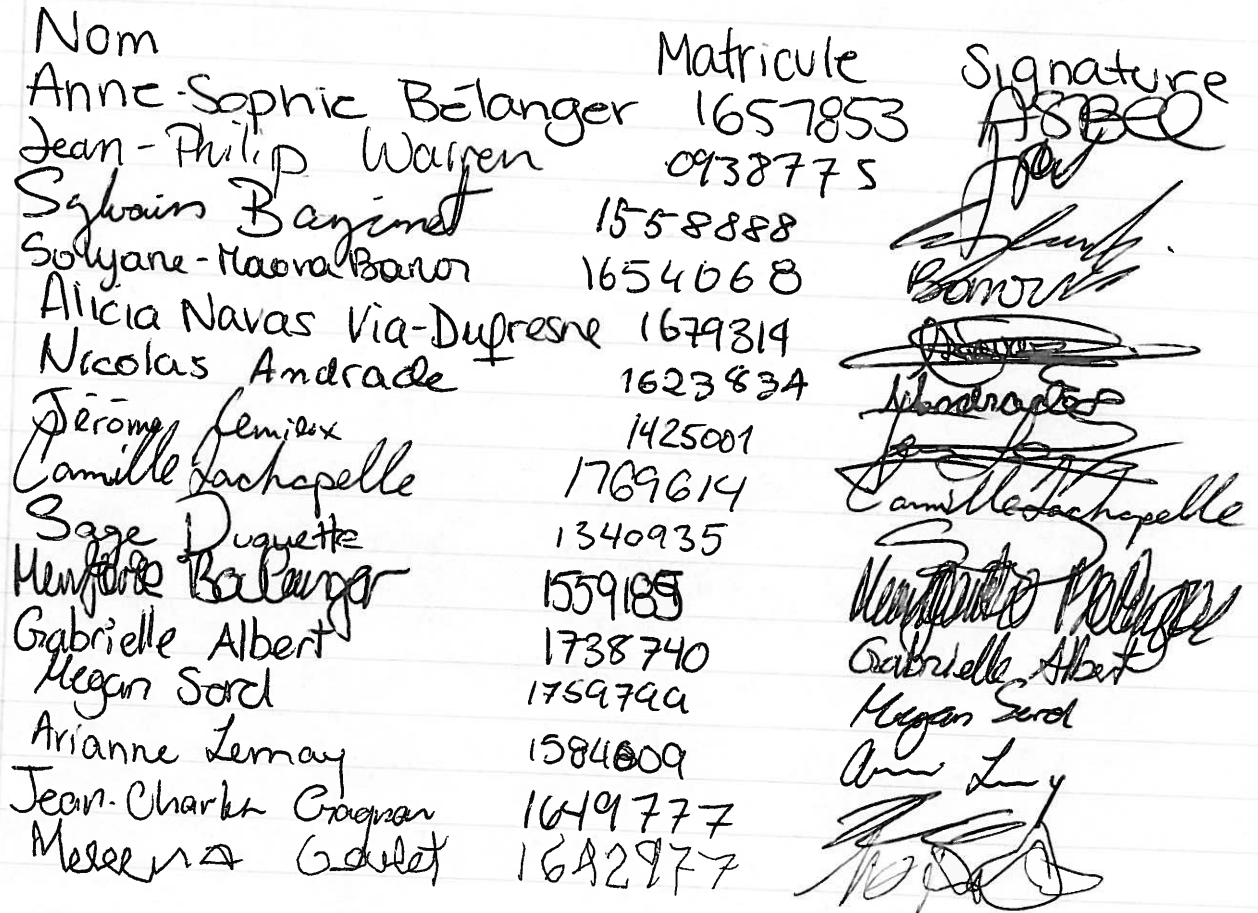 Nom Matricule Signature
Anne-Sophie Bélanger 1657853
Jean-Philip Warren 0938775
Sylvain 1558888
Banor 1654068 Banor
Alicia Navas Via-Dufresne 1679314
Nicolas Andrade 1623834
Jérôme Lemieux 1425001
Camille Lachapelle 1769614 Camille Lachapelle
Sage Duquette 1340935
1559189
Gabrielle Albert 1738740 Gabrielle Albert
Megan Sord 1759799 Megan Sord
Arianne Lemay 1584609
Jean-Charles Gagnon 1649777
Goulet 1642977